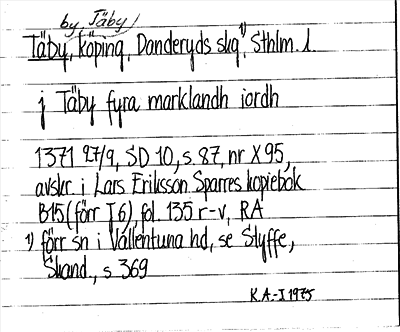 by, Täby/
Täby, köping, Danderyds slg¹⁾, Sthlm. l.
j Täby fyra marklandh iordh
1371 27/9, SD 10, s. 87, nr X 95,
avskr. i Lars Eriksson Sparres kopiebok
B15 (förr T 6), fol. 135 r-v, RA
1) förr sn i Vallentuna hd, se Styffe,
Skand., s 369
K.A.-I 1975